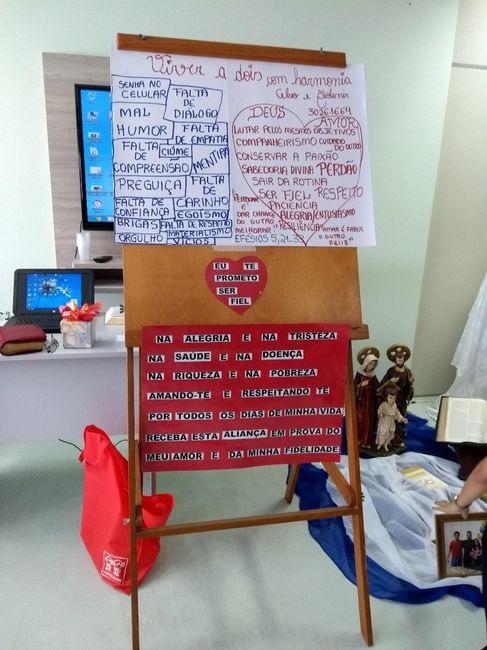 Viver a dois com harmonia
Celso e
SENHA NO CELULAR
FALTA DE DIÁLOGO
MAL HUMOR
FALTA DE EMPATIA
FALTA DE COMPREENSÃO
CIÚME
MENTIRA
PREGUIÇA
FALTA DE CARINHO
FALTA DE CONFIANÇA
EGOÍSMO
BRIGAS
FALTA DE RESPEITO
MATERIALISMO
ORGULHO
VÍCIOS
DEUS
AMOR
LUTAR PELOS MESMOS OBJETIVOS
COMPANHEIRISMO
CUIDADO DO OUTRO
CONSERVAR A PAIXÃO
SABEDORIA DIVINA
PERDÃO
SAIR DA ROTINA
SER FIEL
RESPEITO
PACIENCIA
PERDOAR E DAR CHANCE DO OUTRO MELHORAR
ALEGRIA
ENTUSIASMO
RESILIÊNCIA
"AMAR É FAZER O OUTRO FELIZ"
EFÉSIOS 5,21-33
EU TE
PROMETO
SER
FIEL
NA ALEGRIA E NA TRISTEZA
NA SAÚDE E NA DOENÇA
NA RIQUEZA E NA POBREZA
AMANDO-TE E RESPEITANDO TE
POR TODOS OS DIAS DE MINHA VIDA
RECEBA ESTA ALIANÇA EM PROVA DO
MEU AMOR E DA MINHA FIDELIDADE